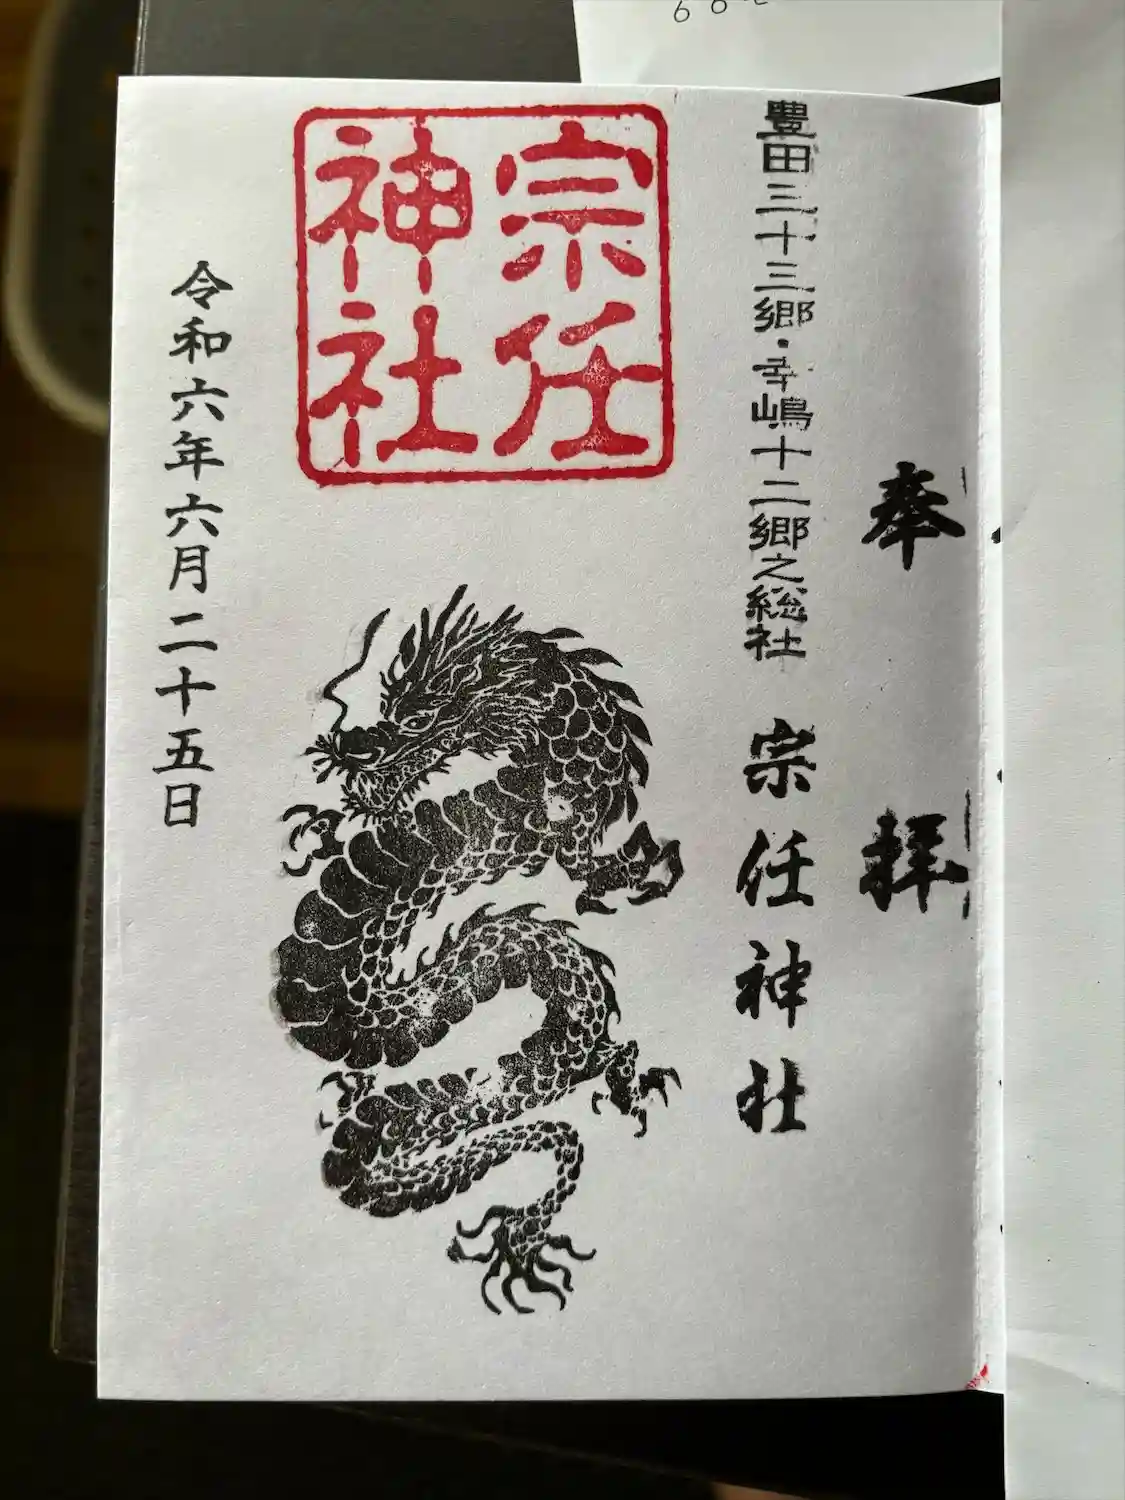 奉拝
豊田三十三郷・幸嶋十二郷之総社
宗任神社
宗任
神社
令和六年六月二十五日